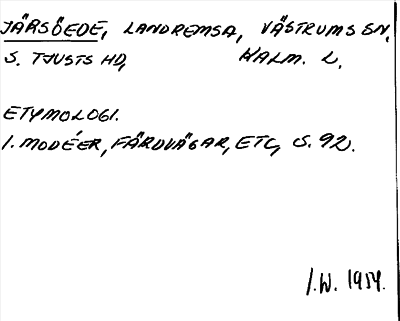 JÄRSÖEDE, LANDREMSA, VÄSTRUMS SN,
S. TJUSTS HD, KALM. L.
ETYMOLOGI.
I. MODÉER, FÄRDVÄGAR, ETC, S. 92.
I.W. 1954.